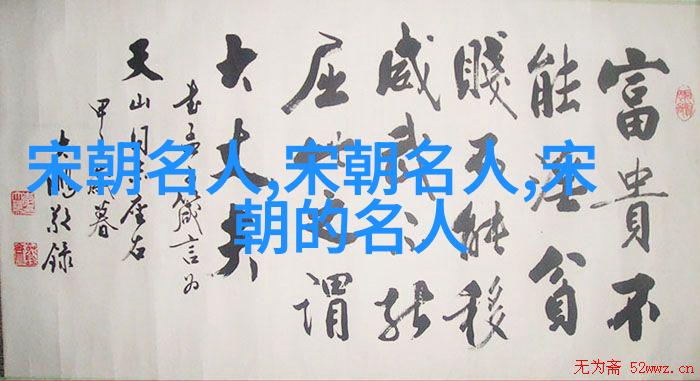 富貴不
能淫貧
賤不能移
威武不能
屈之謂
大丈夫
書孟箴言为
天山同座右
甲歲暮
大敬録
宋朝名人,宋朝名人,宋
朝的名人
无为斋 52wwz.cn